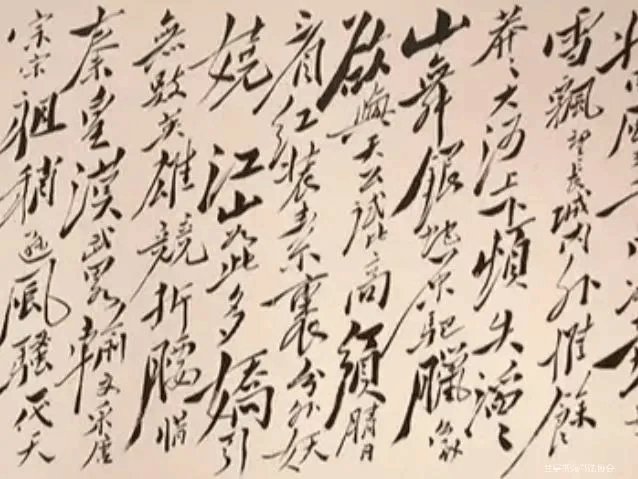 雪飄望长城内外惟餘
莽々大河上下頓失滔々
山舞銀蛇原馳臘象
欲與天公試比高須晴日
看红装素裹分外妖
嬈江山如此多嬌引
無數英雄競折腰惜
秦皇漢武畧輸文采唐
宗宋祖稍逊風騷一代天